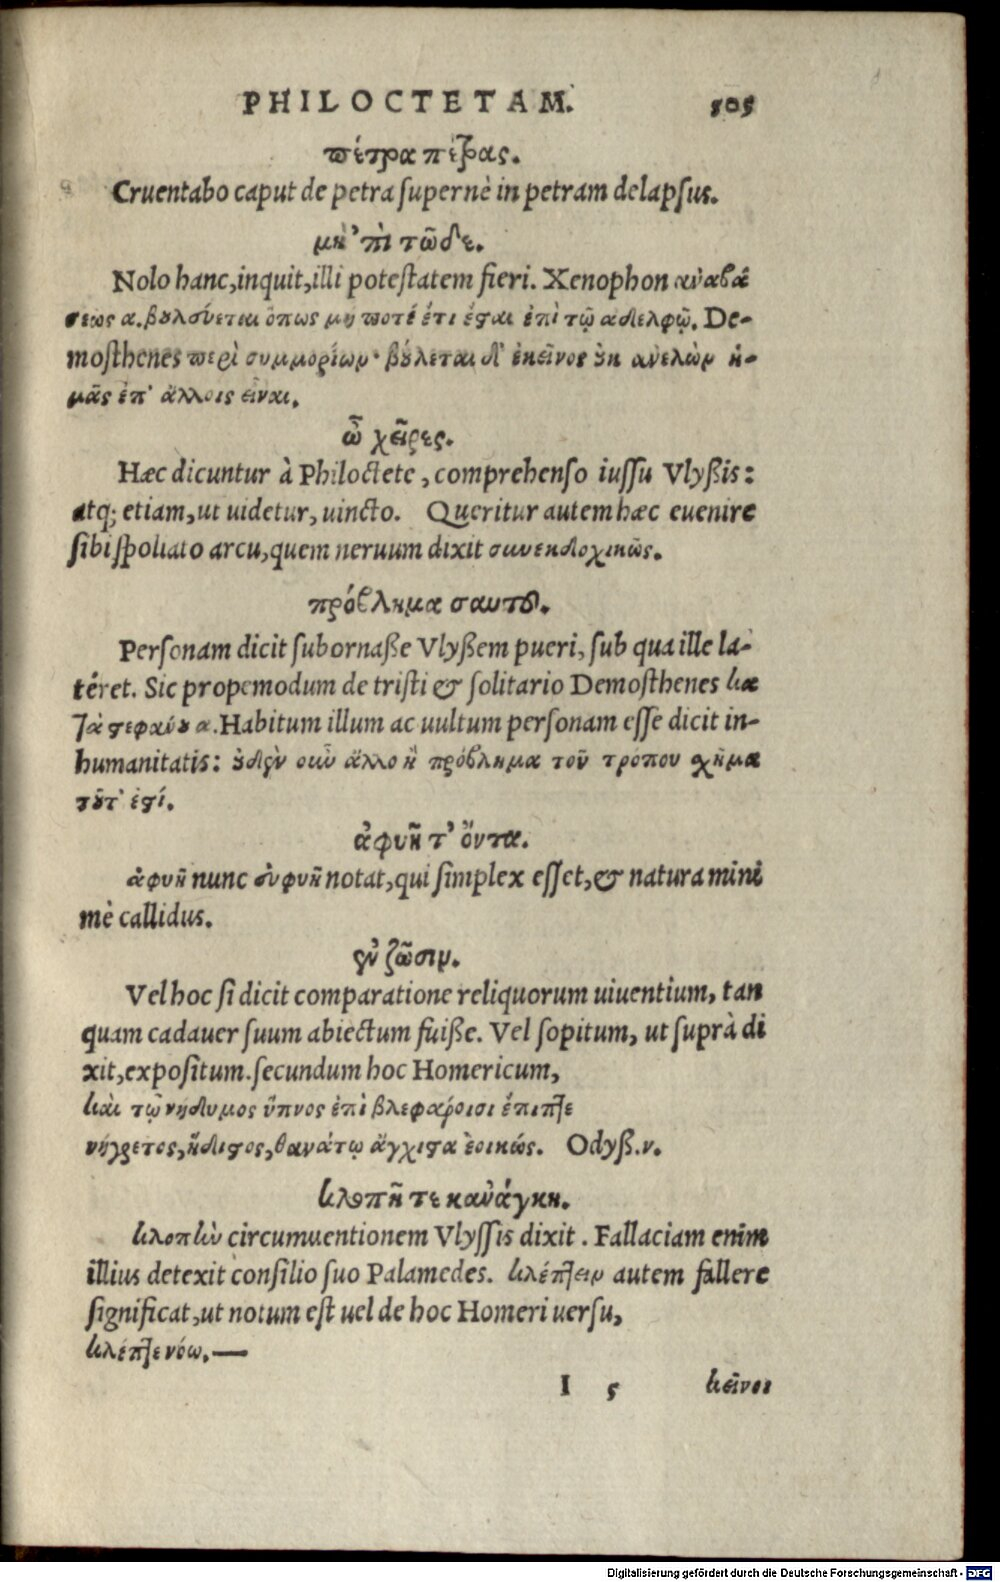 PHILOCTETAM. 505
πέτρα πέτρας.
Cruentabo caput de petra supernè in petram delapsus.
μὴ ’πὶ τῶδε.
Nolo hanc, inquit, illi potestatem fieri. Xenophon ἀναβά
σεως α. βουλεύεται ὅπως μή ποτέ ἔτι ἔσται ἐπὶ τῷ ἀδελφῷ. De-
mosthenes περὶ συμμοριῶν· βούλεται δ’ ἐκεῖνος οὐκ ἀνελὼν ἡ-
μᾶς ἐπ’ ἄλλοις εἶναι.
ὦ χεῖρες.
Hæc dicuntur à Philoctete, comprehenso iussu Vlyßis:
atq; etiam, ut uidetur, uincto. Queritur autem hæc euenire
sibi spoliato arcu, quem neruum dixit συνεκδοχικῶς.
πρόβλημα σαυτοῦ.
Personam dicit subornaße Vlyßem pueri, sub qua ille la-
téret. Sic propemodum de tristi & solitario Demosthenes κα
τὰ στεφάνου α. Habitum illum ac uultum personam esse dicit in-
humanitatis: οὐδὲν οὖν ἄλλο ἢ πρόβλημα τοῦ τρόπου σχῆμα
τοῦτ’ ἐστί.
ἀφυῆ τ’ ὄντα.
ἀφυῆ nunc εὐφυῆ notat, qui simplex esset, & natura mini
mè callidus.
ἐν ζῶσιν.
Vel hoc si dicit comparatione reliquorum uiuentium, tan
quam cadauer suum abiectum fuiße. Vel sopitum, ut suprà di
xit, expositum. secundum hoc Homericum,
καὶ τῷ νήδυμος ὕπνος ἐπὶ βλεφάροισι ἔπιπτε
νήγρετος, ἥδιστος, θανάτῳ ἄγχιστα ἐοικώς. Odyß. ν.
κλοπῇ τε κἀνάγκῃ.
κλοπὴν circumuentionem Vlyssis dixit. Fallaciam enim
illius detexit consilio suo Palamedes. κλέπτειν autem fallere
significat, ut notum est uel de hoc Homeri uersu,
κλέπτε νόῳ. —
I 5 κεῖνοι
Digitalisierung gefördert durch die Deutsche Forschungsgemeinschaft - DFG